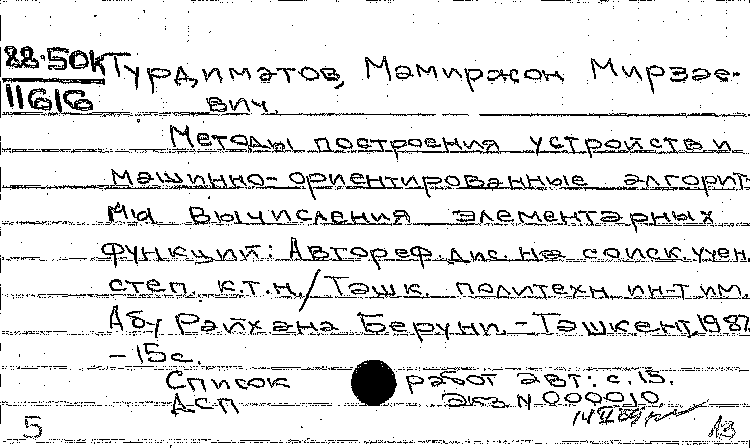 88-50к
11616
Турдиматов, Мамиржон Мирзае-
вич.
Методы построения устройств и
машинно-ориентированные алгорит-
мы вычисления элементарных
функций: Автореф. дис. на соиск. учен.
степ. к.т.н./Ташк. политехн. ин-т им.
Абу Райхана Беруни. - Ташкент, 1987.
- 15с.
Список работ авт.: с. 15.
ДСП Экз N 000010
5